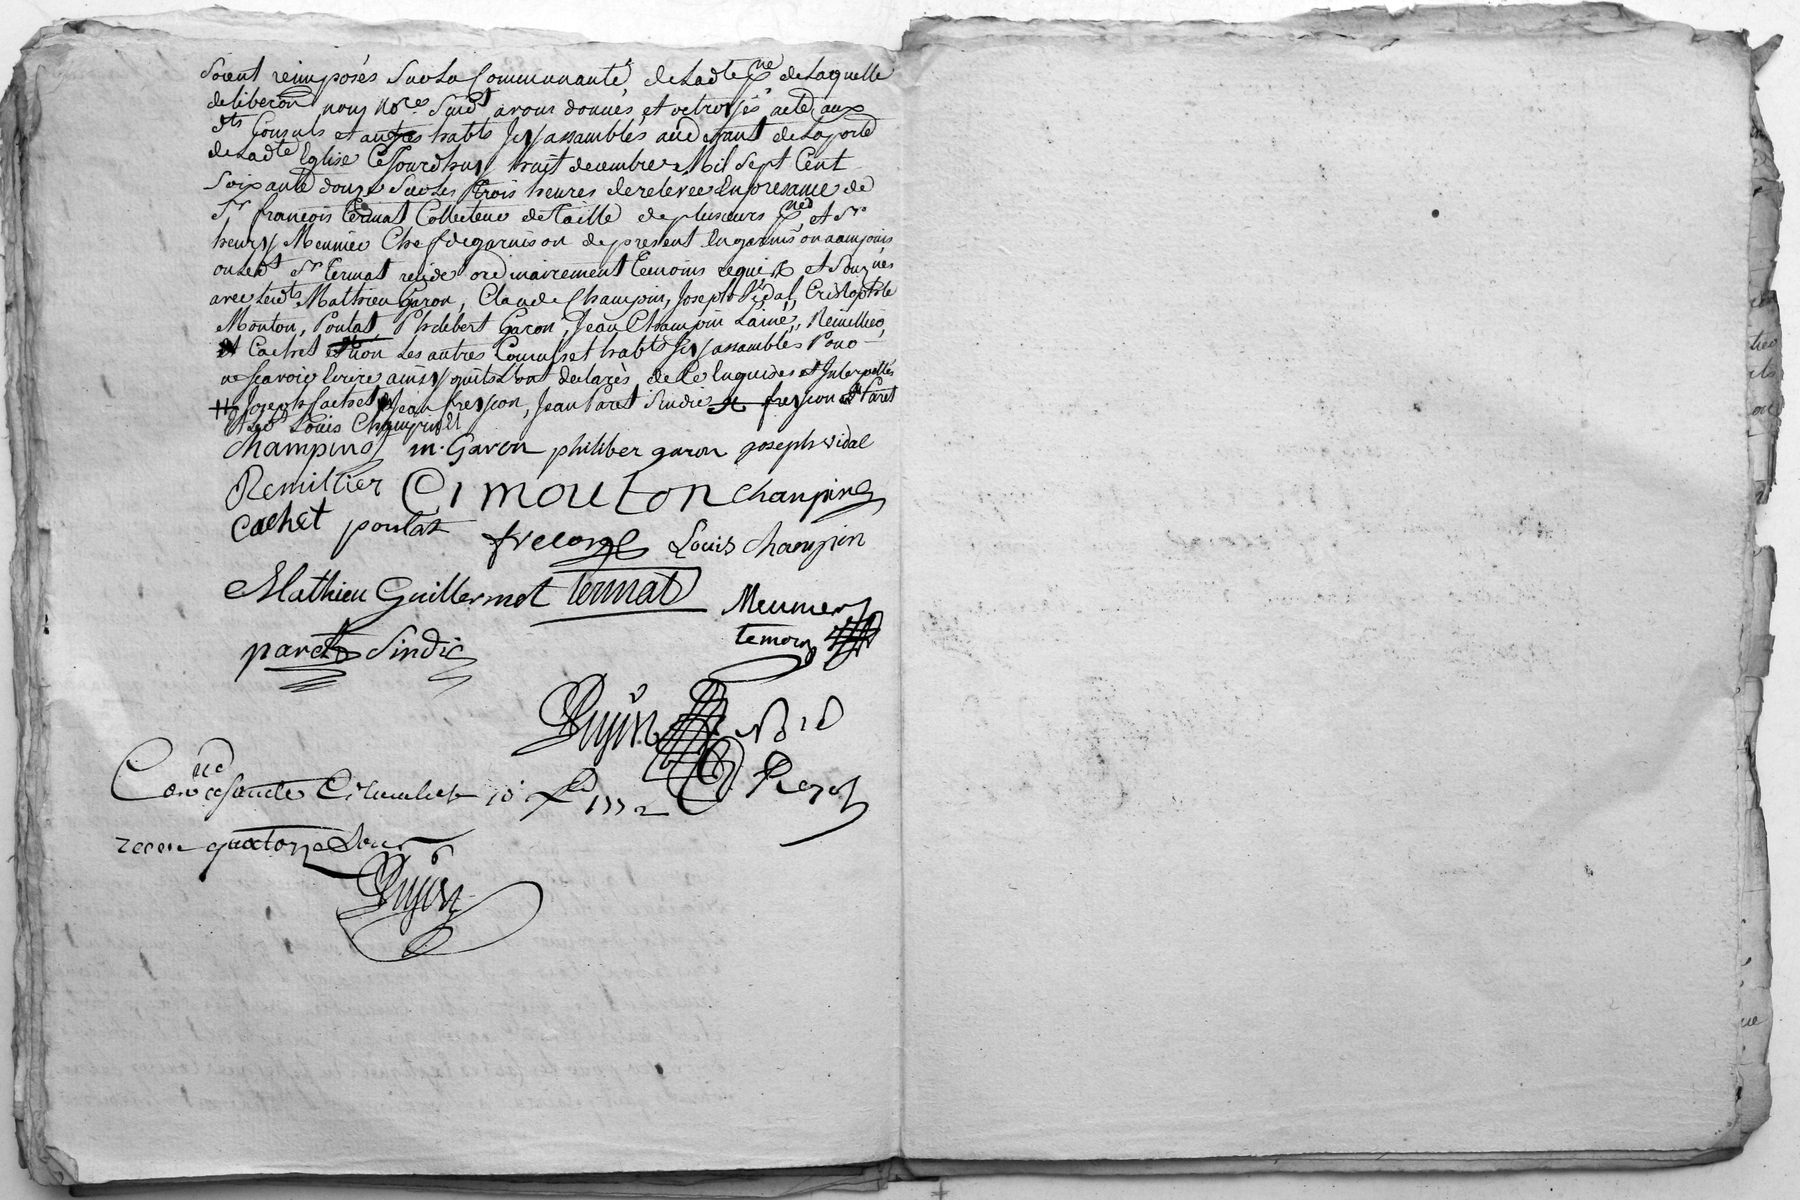 soient reimposés sur la Communauté, de ladte psse de laquelle
deliberon nous nore. susdt avons donnés et octroyés acte aux
dts Consuls et autres habts Jcy assamblés audevant de la porte
de ladte Eglise Cejourdhuy huit decembre Mil Sept Cent
Soixante douze sur les trois heures de relevée En presance de
Sr françois termat Collecteur de taille de plusieurs psses et Sr
henry Meunier Chef de garnison de present En garnison
ou ledt Sr termat reside ordinairement temoins requis et Sougnés
avec lesdts Mathieu Garon, Claude Champin, Joseph Vidal, Cristophle
Mouton, Poulat, Philibert Garon, Jean Champin Lainé, Remillier,
et Cachet et non Les autres Consuls et habts Jcy assamblés Pour
ne scavoir Ecrire ainsy quils L'ont declarés, de Ce Enquises et Interpellés
Joseph Cachet Jean freycon, Jean Paret Sindic freycon et Paret
et Sr Louis Champin
Champin m. Garon philiber garon joseph vidal
Remillier C mouton Champin
Cachet poulat frecon Louis Champin
Mathieu Guillermet termat Meunier
temoin
paret Sindic
Pugin
Controllé 10 1772
recu quatorze Sols
Pugin